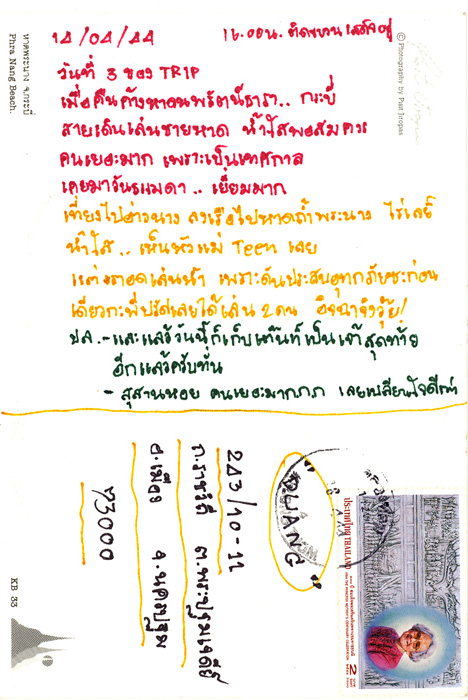 14/04/44
16.00น. ติดขบวนเสด็จอยู่
วันที่ 3 ของ TRIP
เมื่อคืนค้างหาดนพรัตน์ธารา.. กระบี่
สายเดินเล่นชายหาด น้ำใสพอสมควร
คนเยอะมาก เพราะเป็นเทศกาล
เคยมาวันธรรมดา .. เยี่ยมมาก
เที่ยงไปอ่าวนาง ลงเรือไปหาดถ้ำพระนาง ไร่เลย์
น้ำใส .. เห็นหัวแม่ Teen เลย
แต่งรอดเล่นน้ำ เพราะดันประสบอุทกภัยซะก่อน
เดียวกะพี่ปรัสเลยได้เล่น 2 คน อิจฉาจริงวุ้ย!
ปล. - และแล้ววันนี้ก็เก็บเต๊นท์เป็นเจ้าสุดท้าย
อีกแล้วครับท่าน
- สุสานหอย คนเยอะมากกก เลยเปลี่ยนใจดีกว่า
© Photography by Pust Tropas
หาดพระนาง จ.กระบี่
Phra Nang Beach.
"DUANG"
243/10-11
ถ.ราชวิถี ต.พระปฐมเจดีย์
อ.เมือง จ.นครปฐม
73000
ประเทศไทย THAILAND
2
KB 33